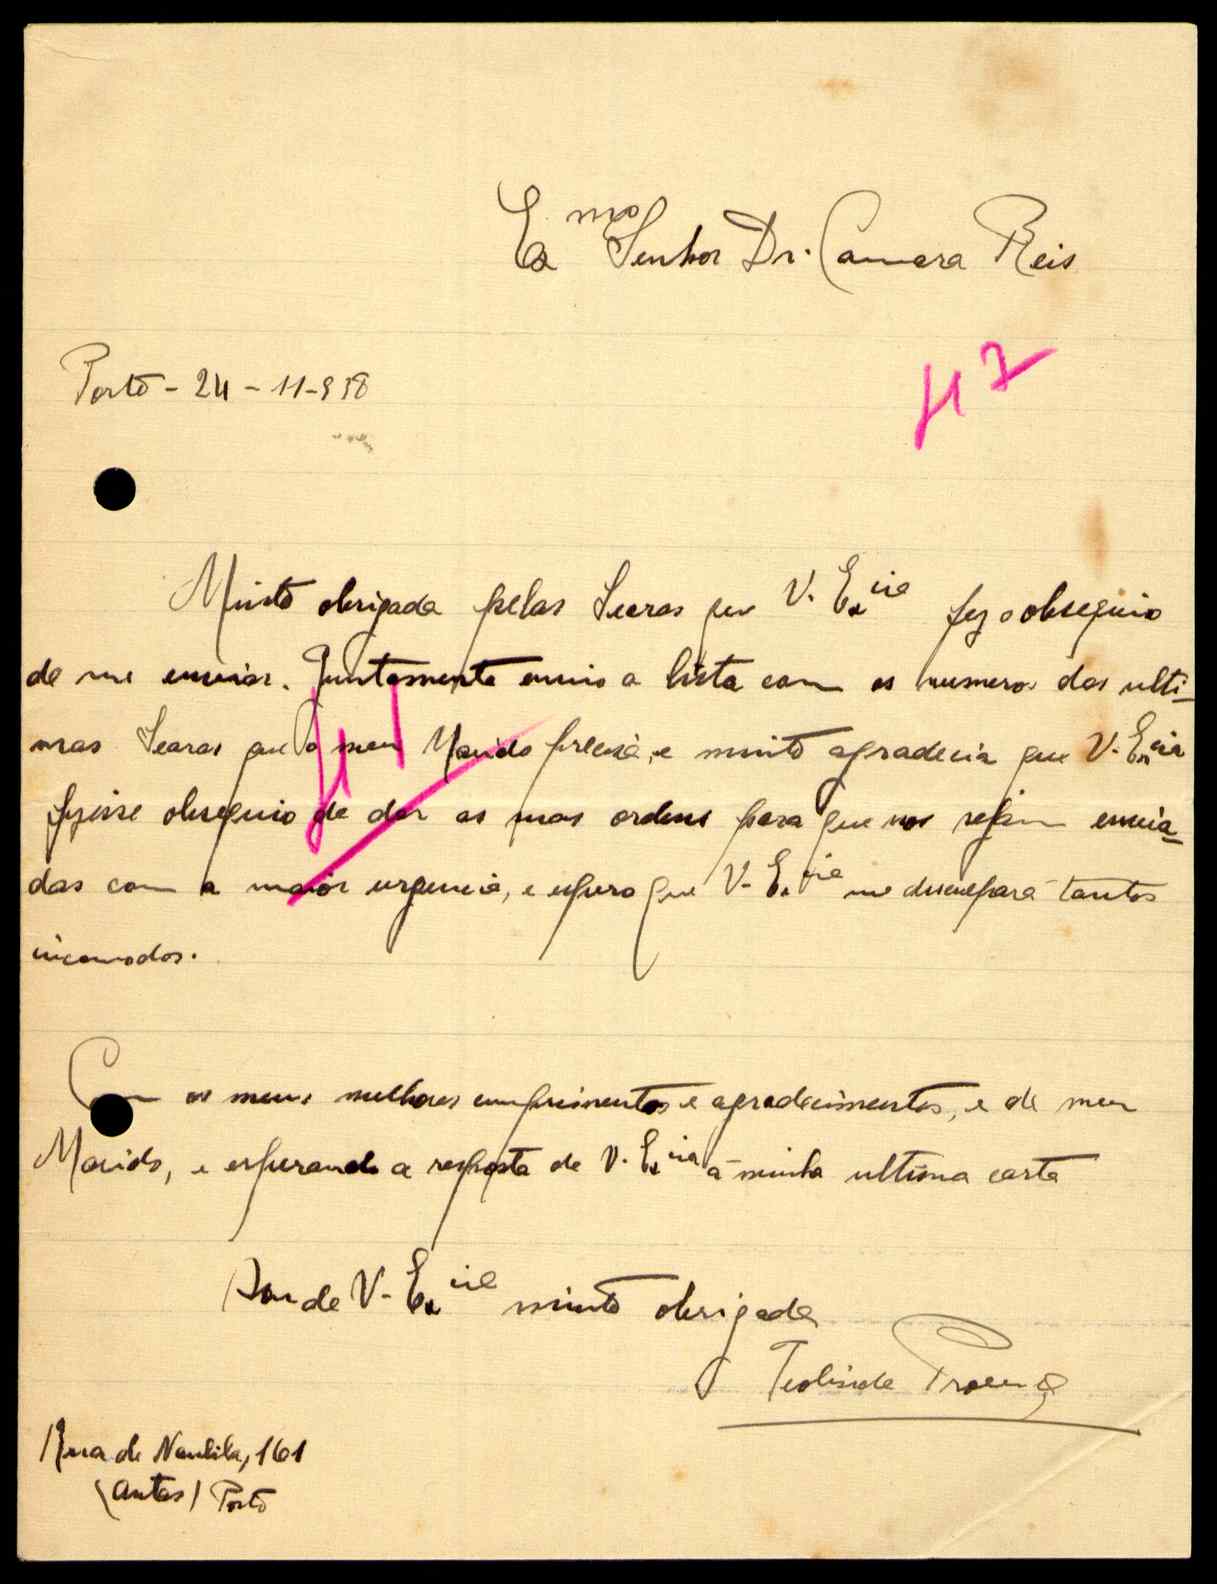 Exmo Senhor Dr. Camara Reis
Porto - 24 - 11-938
47
Muito obrigada pelas Searas que V. Excia fez o obsequio
de me enviar. Juntamente envio a lista com os numeros das ulti-
mas Searas que o meu Marido precisa, e muito agradecia que V. Excia
fizesse obsequio de dar as suas ordens para que nos sejam envia-
das com a maior urgencia, e espero que V. Excia me desculpará tantos
incomodos.
Com os meus melhores cumprimentos e agradecimentos, e de meu
Marido, e esperando a resposta de V. Excia á minha ultima carta
Sou de V. Excia muito obrigada
Teolinda Proença
Rua de Naulila, 161
(Antas) Porto